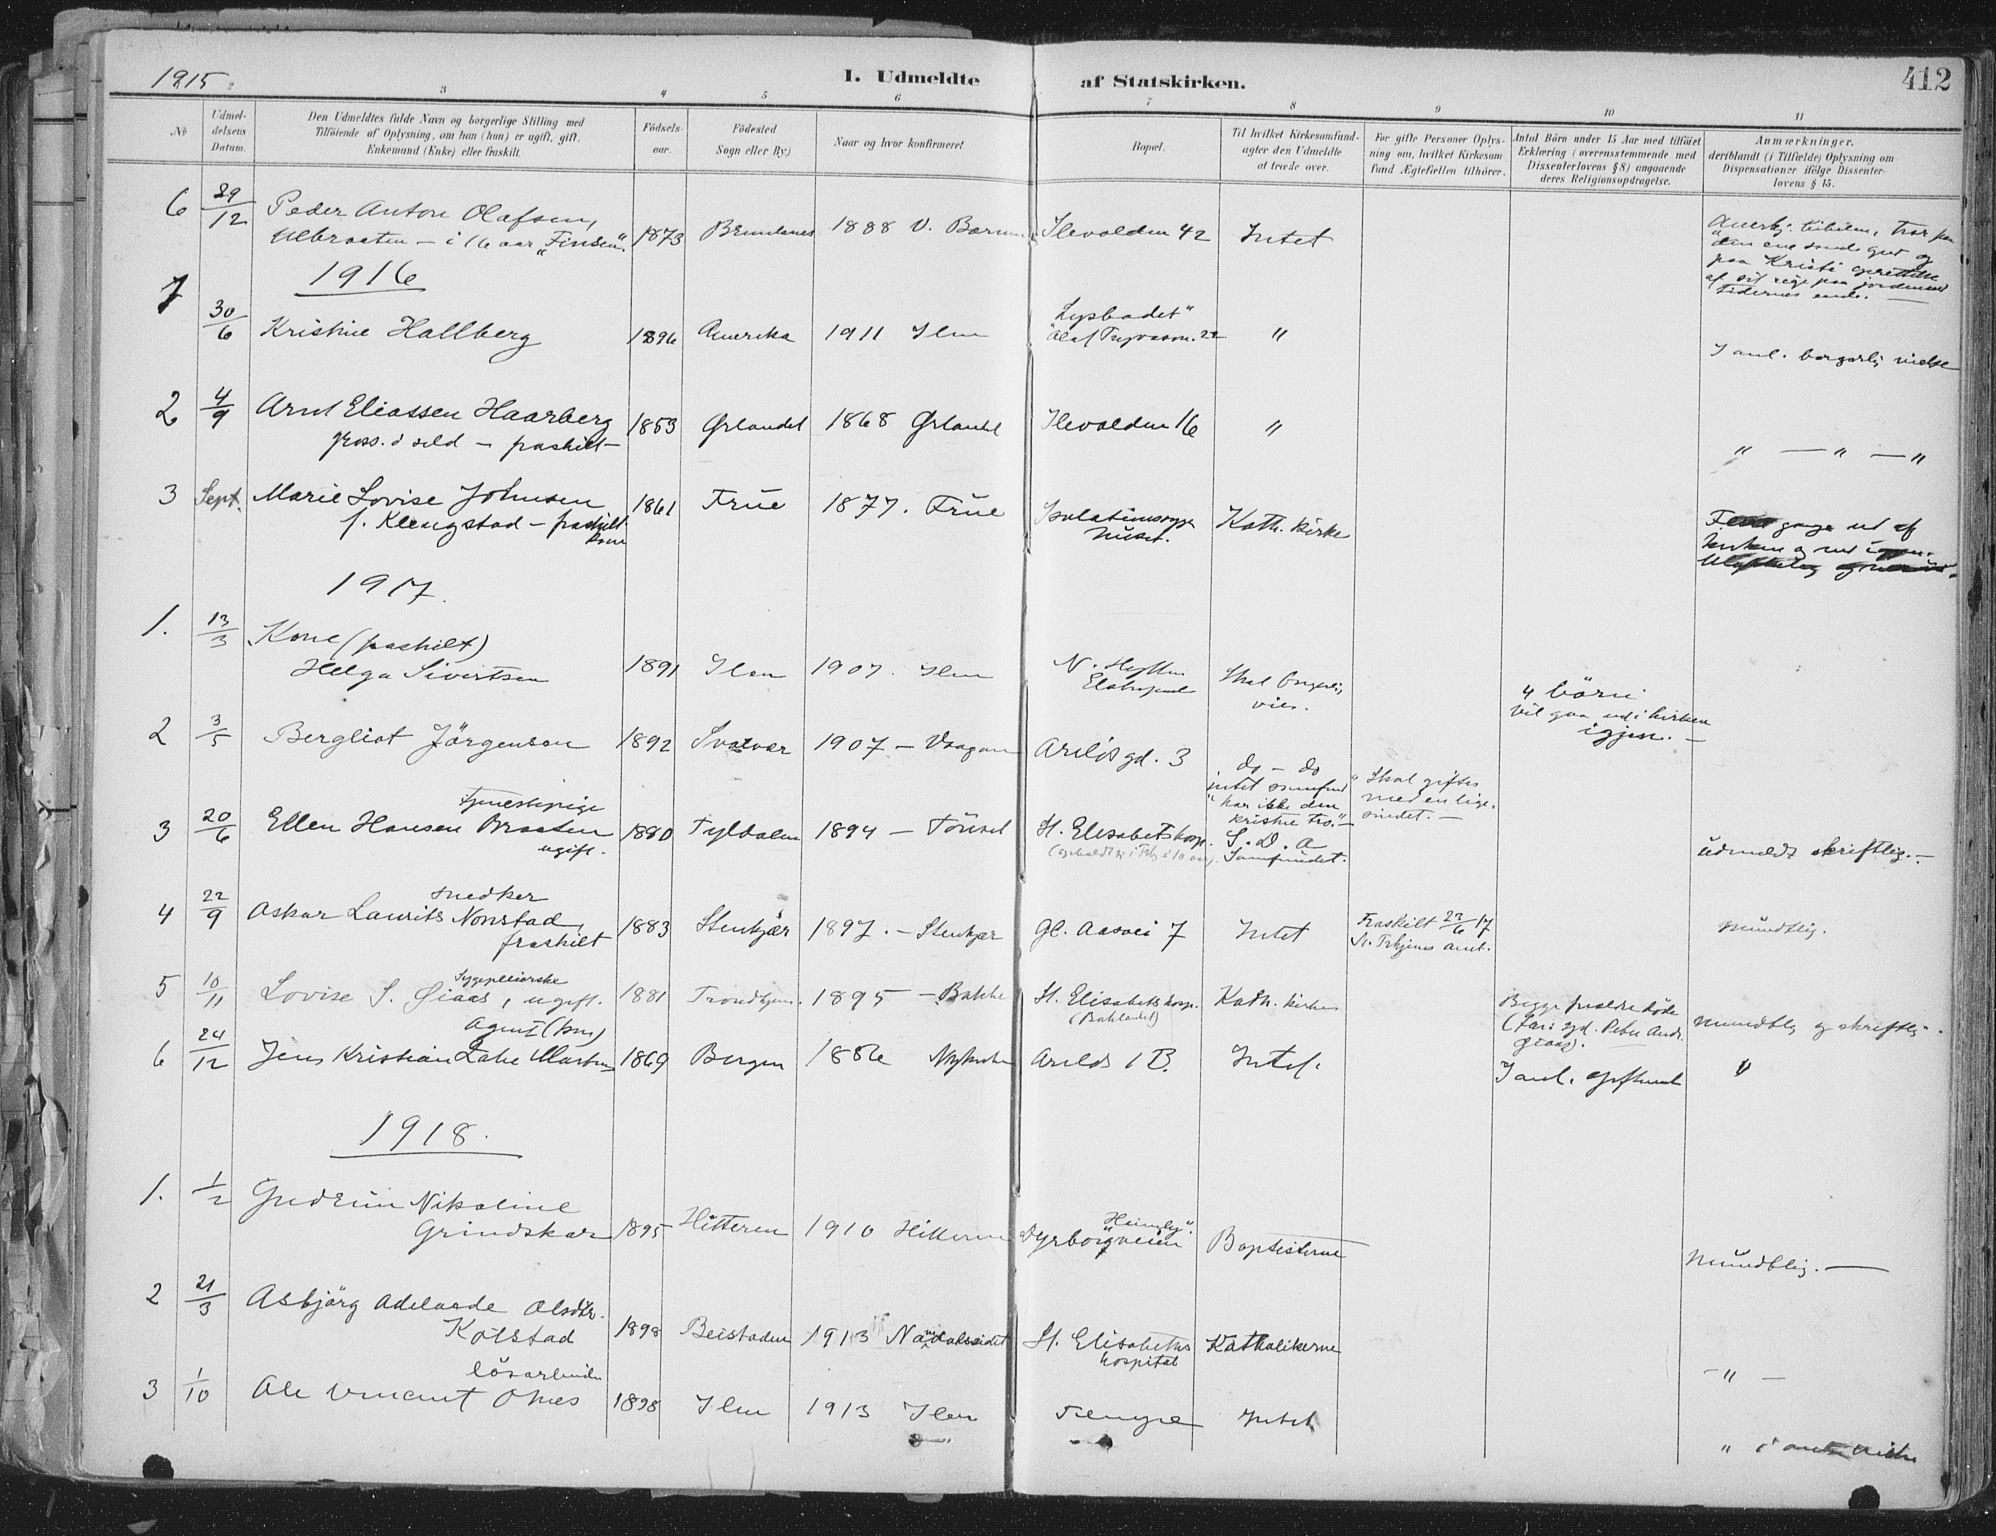 1915
I. Udmeldte af Statskirken.
412
1 2 3 4 5 6 7 8 9 10 11
No
Udmeldelsens Datum.
Den Udmeldtes fulde Navn og borgerlige Stilling med
Tilföiende af Oplysning, om han (hun) er ugift, gift,
Enkemand (Enke) eller fraskilt.
Födselsaar.
Födested
Sogn eller By.)
Naar og hvor konfirmeret.
Bopæl.
Til hvilket Kirkesamfund
agter den Udmeldte
at træde over.
For gifte Personer Oplysning om, hvilket Kirkesamfund Ægtefællen tilhörer.
Antal Börn under 15 Aar med tilföiet
Erklæring (overensstemmende med
Dissenterlovens § 8) angaaende
deres Religionsopdragelse.
Anmærkninger,
deriblandt (i Tilfælde) Oplysning om
Dispensationer ifölge Dissenterlovens § 15.
6 29/12 Peder Anton Olafsen,
Ulbraaten – i 16 aar "Finsen". 1873 1888 V. Ilevolden 42 Intet
den ene sande gud og
paa Kristi oprettelse
af sit rige paa jorden
tidernes ende.
1916
7 30/6 Kristine Hallberg 1896 Amerika 1911 Ilen "Lysbadet"
Olaf Trygvason. 22 "
I anl. borgerlig vielse
2 4/9 Arnt Eliassen Haarberg
– fraskilt – 1853 Ørlandet 1868 Ørlandet Ilevolden 16 "
" — " — "
3 Sept. Marie Lovise Johnsen
f. Klengstad – fraskilt
kone 1861 Frue 1877. Frue Isolationssygehuset. Kath. kirke
gange ud af
kirken og ind igjen.
1917.
1. 13/3 Kone (fraskilt)
Helga Sivertsen 1891 Ilen 1907. Ilen N.
Skal borgerlig
vies.
4 börn
vil gaa ind i kirken
igjen. –
2 3/5 Bergliot Jörgensen 1892 Svolvær 1907 – Vaagan Arilds gd. 3
do – do
intet samfund
"har ikke den
kristne tro." –
"Skal giftes
med en ligesindet. –
3 20/6 tjenestepige
Ellen Hansen Braaten
ugift. 1880 Tyldalen 1894 – Tönset St. Elisabeths hosp. S. D. A
Samfundet.
udmeldt skriftlig. –
4 22/9 snedker
Oskar Laurits Nonstad,
fraskilt 1883 Stenkjær 1897. – Stenkjær Gl. Aasvei 7 Intet
Fraskilt 23/6 17
N. Trhjems amt.
mundtlig.
5 10/11 Sygepleierske
Lovise S. Øiaas, ugift. 1881 Trondhjem. 1895 – Bakke St. Elisabeths hosp.
(Baklandet) Kath. kirke
Begge forældre döde
(far: gd. Peter Andr.
Øiaas).
mundtlig og skriftlig.
6 24/12 Agent
Jens Kristian Lake 1869 Bergen 1886 Nykirken Arilds 1 B. Intet.
I anl. giftermaal "
1918.
1. 1/2 Gudrun Nikoline
Grindskar 1895 Hitteren 1910 Hitteren "Heimly"
Dyrborgveien Baptisterne
Mundtlig. —
2 21/3 Asbjörg Adelaide Olsdtr.
Kolstad 1898 Beistaden 1913 Namdalseidet St. Elisabeths
hospital Katholikerne
– " –
3 1/10 lösarbeider
Ole Vincent 1898 Ilen 1913 Ilen Tempe Intet
" i